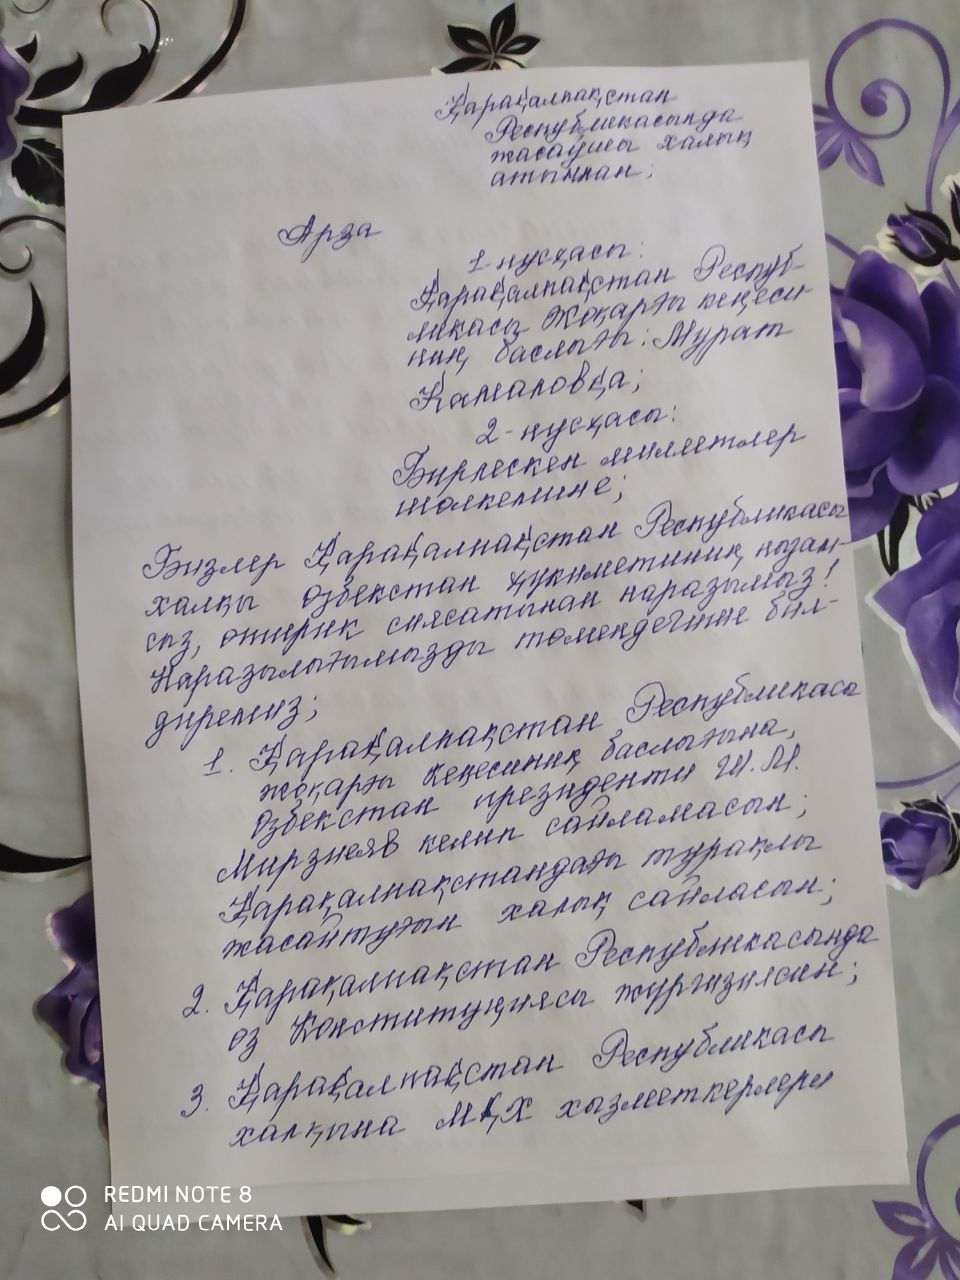 Қарақалпақстан
Республикасында
жасаўшы халық
атыннан;
Арза
1-нусқасы:
Қарақалпақстан Респуб-
ликасы Жоқарғы кеңеси-
ниң баслығы: Мурат
Камаловқа;
2-нусқасы:
Бирлескен миллетлер
шолкемине;
Бизлер Қарақалпақстан Республикасы
халқы озбекстан ҳукиметиниң нызам-
сыз, отирик сиясатынан наразымыз!
Наразылығымызды томендегише бил-
диремиз;
1. Қарақалпақстан Республикасы
жоқарғы Кеңесиниң баслығына,
Озбекстан президенти Ш.М.
Мирзияев келип сайламасын;
Қарақалпақстандағы турақлы
жасайтуғын халық сайласын;
2. Қарақалпақстан Республикасында
оз Конституциясы жургизилсин;
3. Қарақалпақстан Республикасы
халқына МҚХ хызметкерлери
REDMI NOTE 8
AI QUAD CAMERA